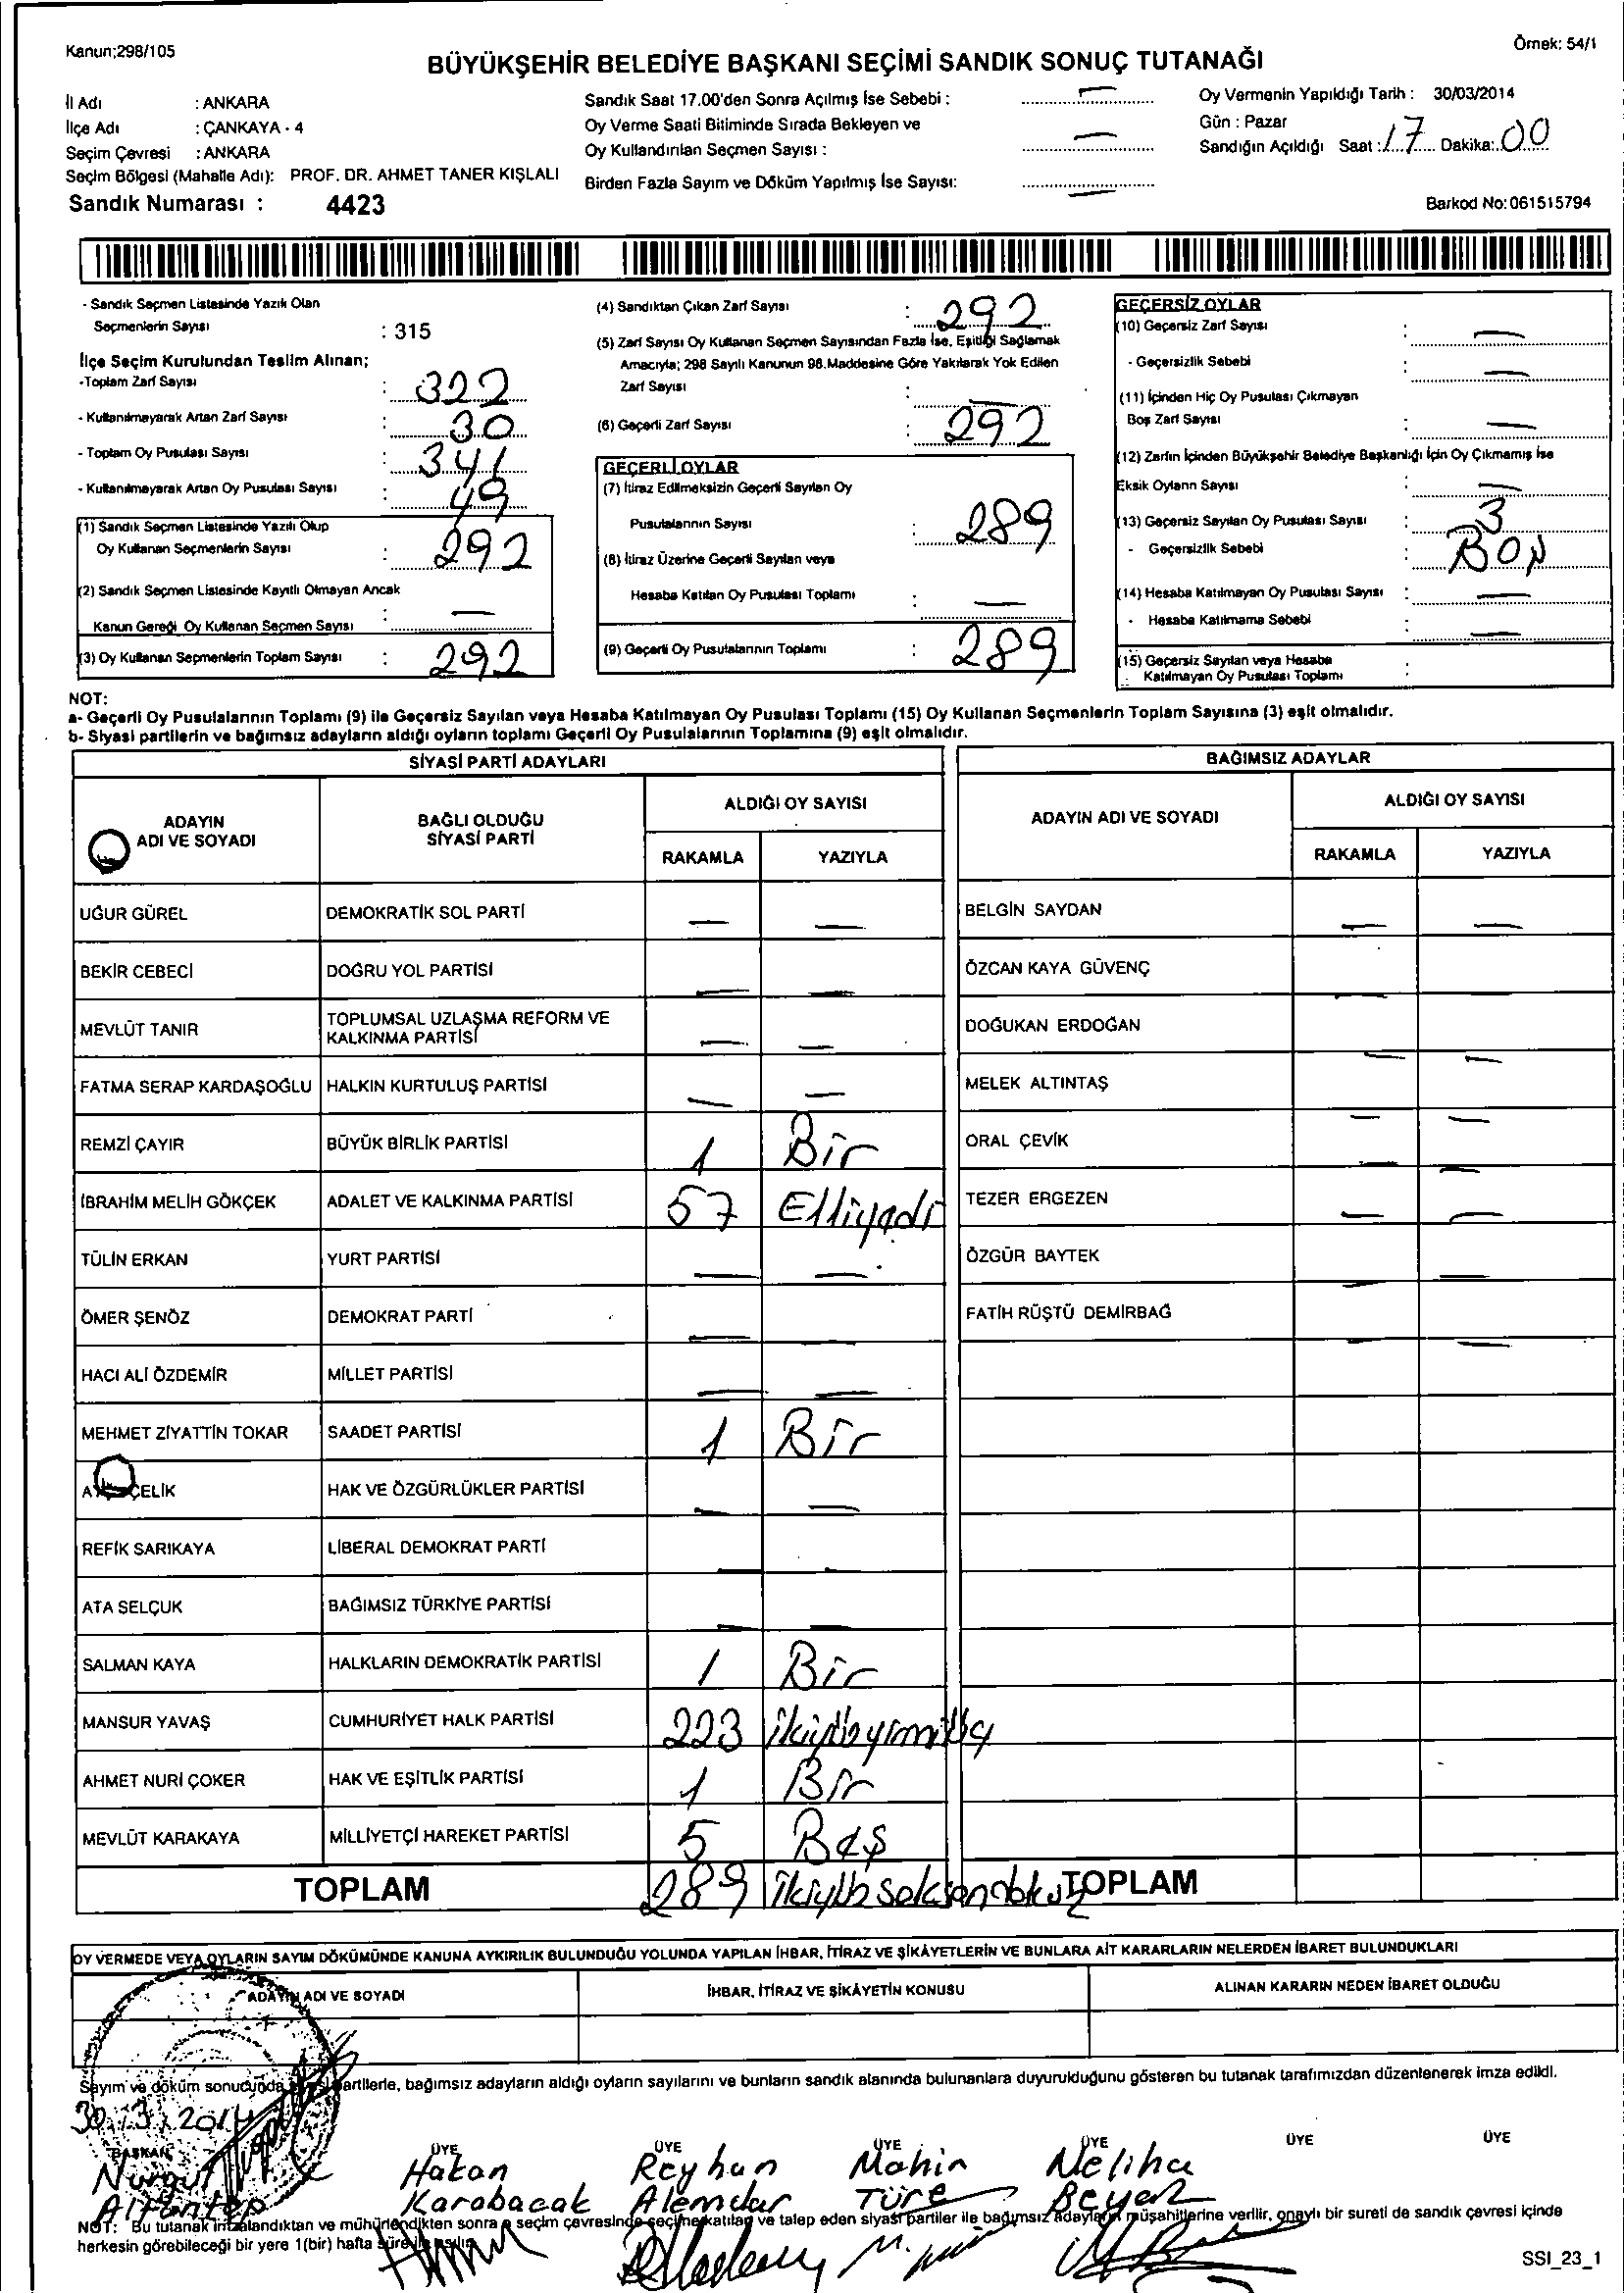 Kanun;298/105
Örnek: 54/1
BÜYÜKŞEHİR BELEDİYE BAŞKANI SEÇİMİ SANDIK SONUÇ TUTANAĞI
İl Adı : ANKARA
İlçe Adı : ÇANKAYA - 4
Seçim Çevresi : ANKARA
Seçim Bölgesi (Mahalle Adı): PROF. DR. AHMET TANER KIŞLALI
Sandık Numarası : 4423
Sandık Saat 17.00'den Sonra Açılmış İse Sebebi : —
Oy Verme Saati Bitiminde Sırada Bekleyen ve
Oy Kullandırılan Seçmen Sayısı : —
Birden Fazla Sayım ve Döküm Yapılmış İse Sayısı: —
Oy Vermenin Yapıldığı Tarih : 30/03/2014
Gün : Pazar
Sandığın Açıldığı Saat : 17 Dakika: 00
Barkod No: 061515794
- Sandık Seçmen Listesinde Yazılı Olan
Seçmenlerin Sayısı : 315
İlçe Seçim Kurulundan Teslim Alınan;
-Toplam Zarf Sayısı : 322
- Kullanılmayarak Artan Zarf Sayısı : 30
- Toplam Oy Pusulası Sayısı : 341
- Kullanılmayarak Artan Oy Pusulası Sayısı : 49
(1) Sandık Seçmen Listesinde Yazılı Olup
Oy Kullanan Seçmenlerin Sayısı : 292
(2) Sandık Seçmen Listesinde Kayıtlı Olmayan Ancak
Kanun Gereği Oy Kullanan Seçmen Sayısı : —
(3) Oy Kullanan Seçmenlerin Toplam Sayısı : 292
(4) Sandıktan Çıkan Zarf Sayısı : 292
(5) Zarf Sayısı Oy Kullanan Seçmen Sayısından Fazla İse, Eşitliği Sağlamak
Amacıyla; 298 Sayılı Kanunun 98.Maddesine Göre Yakılarak Yok Edilen
Zarf Sayısı : —
(6) Geçerli Zarf Sayısı : 292
GEÇERLİ OYLAR
(7) İtiraz Edilmeksizin Geçerli Sayılan Oy
Pusulalarının Sayısı : 289
(8) İtiraz Üzerine Geçerli Sayılan veya
Hesaba Katılan Oy Pusulası Toplamı : —
(9) Geçerli Oy Pusulalarının Toplamı : 289
GEÇERSİZ OYLAR
(10) Geçersiz Zarf Sayısı : —
- Geçersizlik Sebebi : —
(11) İçinden Hiç Oy Pusulası Çıkmayan
Boş Zarf Sayısı : —
(12) Zarfın İçinden Büyükşehir Belediye Başkanlığı İçin Oy Çıkmamış İse
Eksik Oyların Sayısı : —
(13) Geçersiz Sayılan Oy Pusulası Sayısı : 3
- Geçersizlik Sebebi : Boş
(14) Hesaba Katılmayan Oy Pusulası Sayısı : —
- Hesaba Katılmama Sebebi : —
(15) Geçersiz Sayılan veya Hesaba
Katılmayan Oy Pusulası Toplamı :
NOT:
a- Geçerli Oy Pusulalarının Toplamı (9) ile Geçersiz Sayılan veya Hesaba Katılmayan Oy Pusulası Toplamı (15) Oy Kullanan Seçmenlerin Toplam Sayısına (3) eşit olmalıdır.
b- Siyasi partilerin ve bağımsız adayların aldığı oyların toplamı Geçerli Oy Pusulalarının Toplamına (9) eşit olmalıdır.
SİYASİ PARTİ ADAYLARI
ADAYIN ADI VE SOYADI
BAĞLI OLDUĞU SİYASİ PARTİ
ALDIĞI OY SAYISI
RAKAMLA YAZIYLA
UĞUR GÜREL DEMOKRATİK SOL PARTİ — —
BEKİR CEBECİ DOĞRU YOL PARTİSİ — —
MEVLÜT TANIR TOPLUMSAL UZLAŞMA REFORM VE KALKINMA PARTİSİ — —
FATMA SERAP KARDAŞOĞLU HALKIN KURTULUŞ PARTİSİ — —
REMZİ ÇAYIR BÜYÜK BİRLİK PARTİSİ 1 Bir
İBRAHİM MELİH GÖKÇEK ADALET VE KALKINMA PARTİSİ 57 Elliyedi
TÜLİN ERKAN YURT PARTİSİ — —
ÖMER ŞENÖZ DEMOKRAT PARTİ — —
HACI ALİ ÖZDEMİR MİLLET PARTİSİ — —
MEHMET ZİYATTİN TOKAR SAADET PARTİSİ 1 Bir
ÇELİK HAK VE ÖZGÜRLÜKLER PARTİSİ — —
REFİK SARIKAYA LİBERAL DEMOKRAT PARTİ — —
ATA SELÇUK BAĞIMSIZ TÜRKİYE PARTİSİ — —
SALMAN KAYA HALKLARIN DEMOKRATİK PARTİSİ 1 Bir
MANSUR YAVAŞ CUMHURİYET HALK PARTİSİ 223 ikiyüzyirmiüç
AHMET NURİ ÇOKER HAK VE EŞİTLİK PARTİSİ 1 Bir
MEVLÜT KARAKAYA MİLLİYETÇİ HAREKET PARTİSİ 5 Beş
TOPLAM 289 ikiyüzseksendokuz
BAĞIMSIZ ADAYLAR
ADAYIN ADI VE SOYADI
ALDIĞI OY SAYISI
RAKAMLA YAZIYLA
BELGİN SAYDAN — —
ÖZCAN KAYA GÜVENÇ — —
DOĞUKAN ERDOĞAN — —
MELEK ALTINTAŞ — —
ORAL ÇEVİK — —
TEZER ERGEZEN — —
ÖZGÜR BAYTEK — —
FATİH RÜŞTÜ DEMİRBAĞ — —
TOPLAM
OY VERMEDE VEYA OYLARIN SAYIM DÖKÜMÜNDE KANUNA AYKIRILIK BULUNDUĞU YOLUNDA YAPILAN İHBAR, İTİRAZ VE ŞİKÂYETLERİN VE BUNLARA AİT KARARLARIN NELERDEN İBARET BULUNDUKLARI
ADAYIN ADI VE SOYADI
İHBAR, İTİRAZ VE ŞİKÂYETİN KONUSU
ALINAN KARARIN NEDEN İBARET OLDUĞU
Sayım ve döküm sonucunda siyasi partilerle, bağımsız adayların aldığı oyların sayılarını ve bunların sandık alanında bulunanlara duyurulduğunu gösteren bu tutanak tarafımızdan düzenlenerek imza edildi.
30.3.2014
BAŞKAN ÜYE ÜYE ÜYE ÜYE ÜYE ÜYE
Hakan Reyhan Mahir Meliha
Karabacak Alemdar Türe Beyaz
NOT: Bu tutanak imzalandıktan ve mühürlendikten sonra o seçim çevresinde seçime katılan ve talep eden siyasi partiler ile bağımsız adayların müşahitlerine verilir, onaylı bir sureti de sandık çevresi içinde
herkesin görebileceği bir yere 1(bir) hafta süreyle asılır.
SSI_23_1